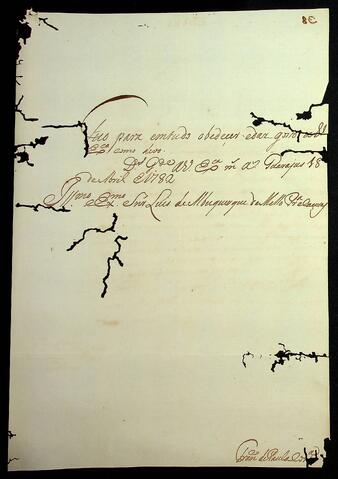 38
para em tudo obedecer e dar gosto a V
Exª como devo.
Ds Gde a V. Exª ms as 18
de Abril de 1782
Illmo Exmo Snr Luis de Albuquerque de Mello Pra Caceres
Franco de Paula